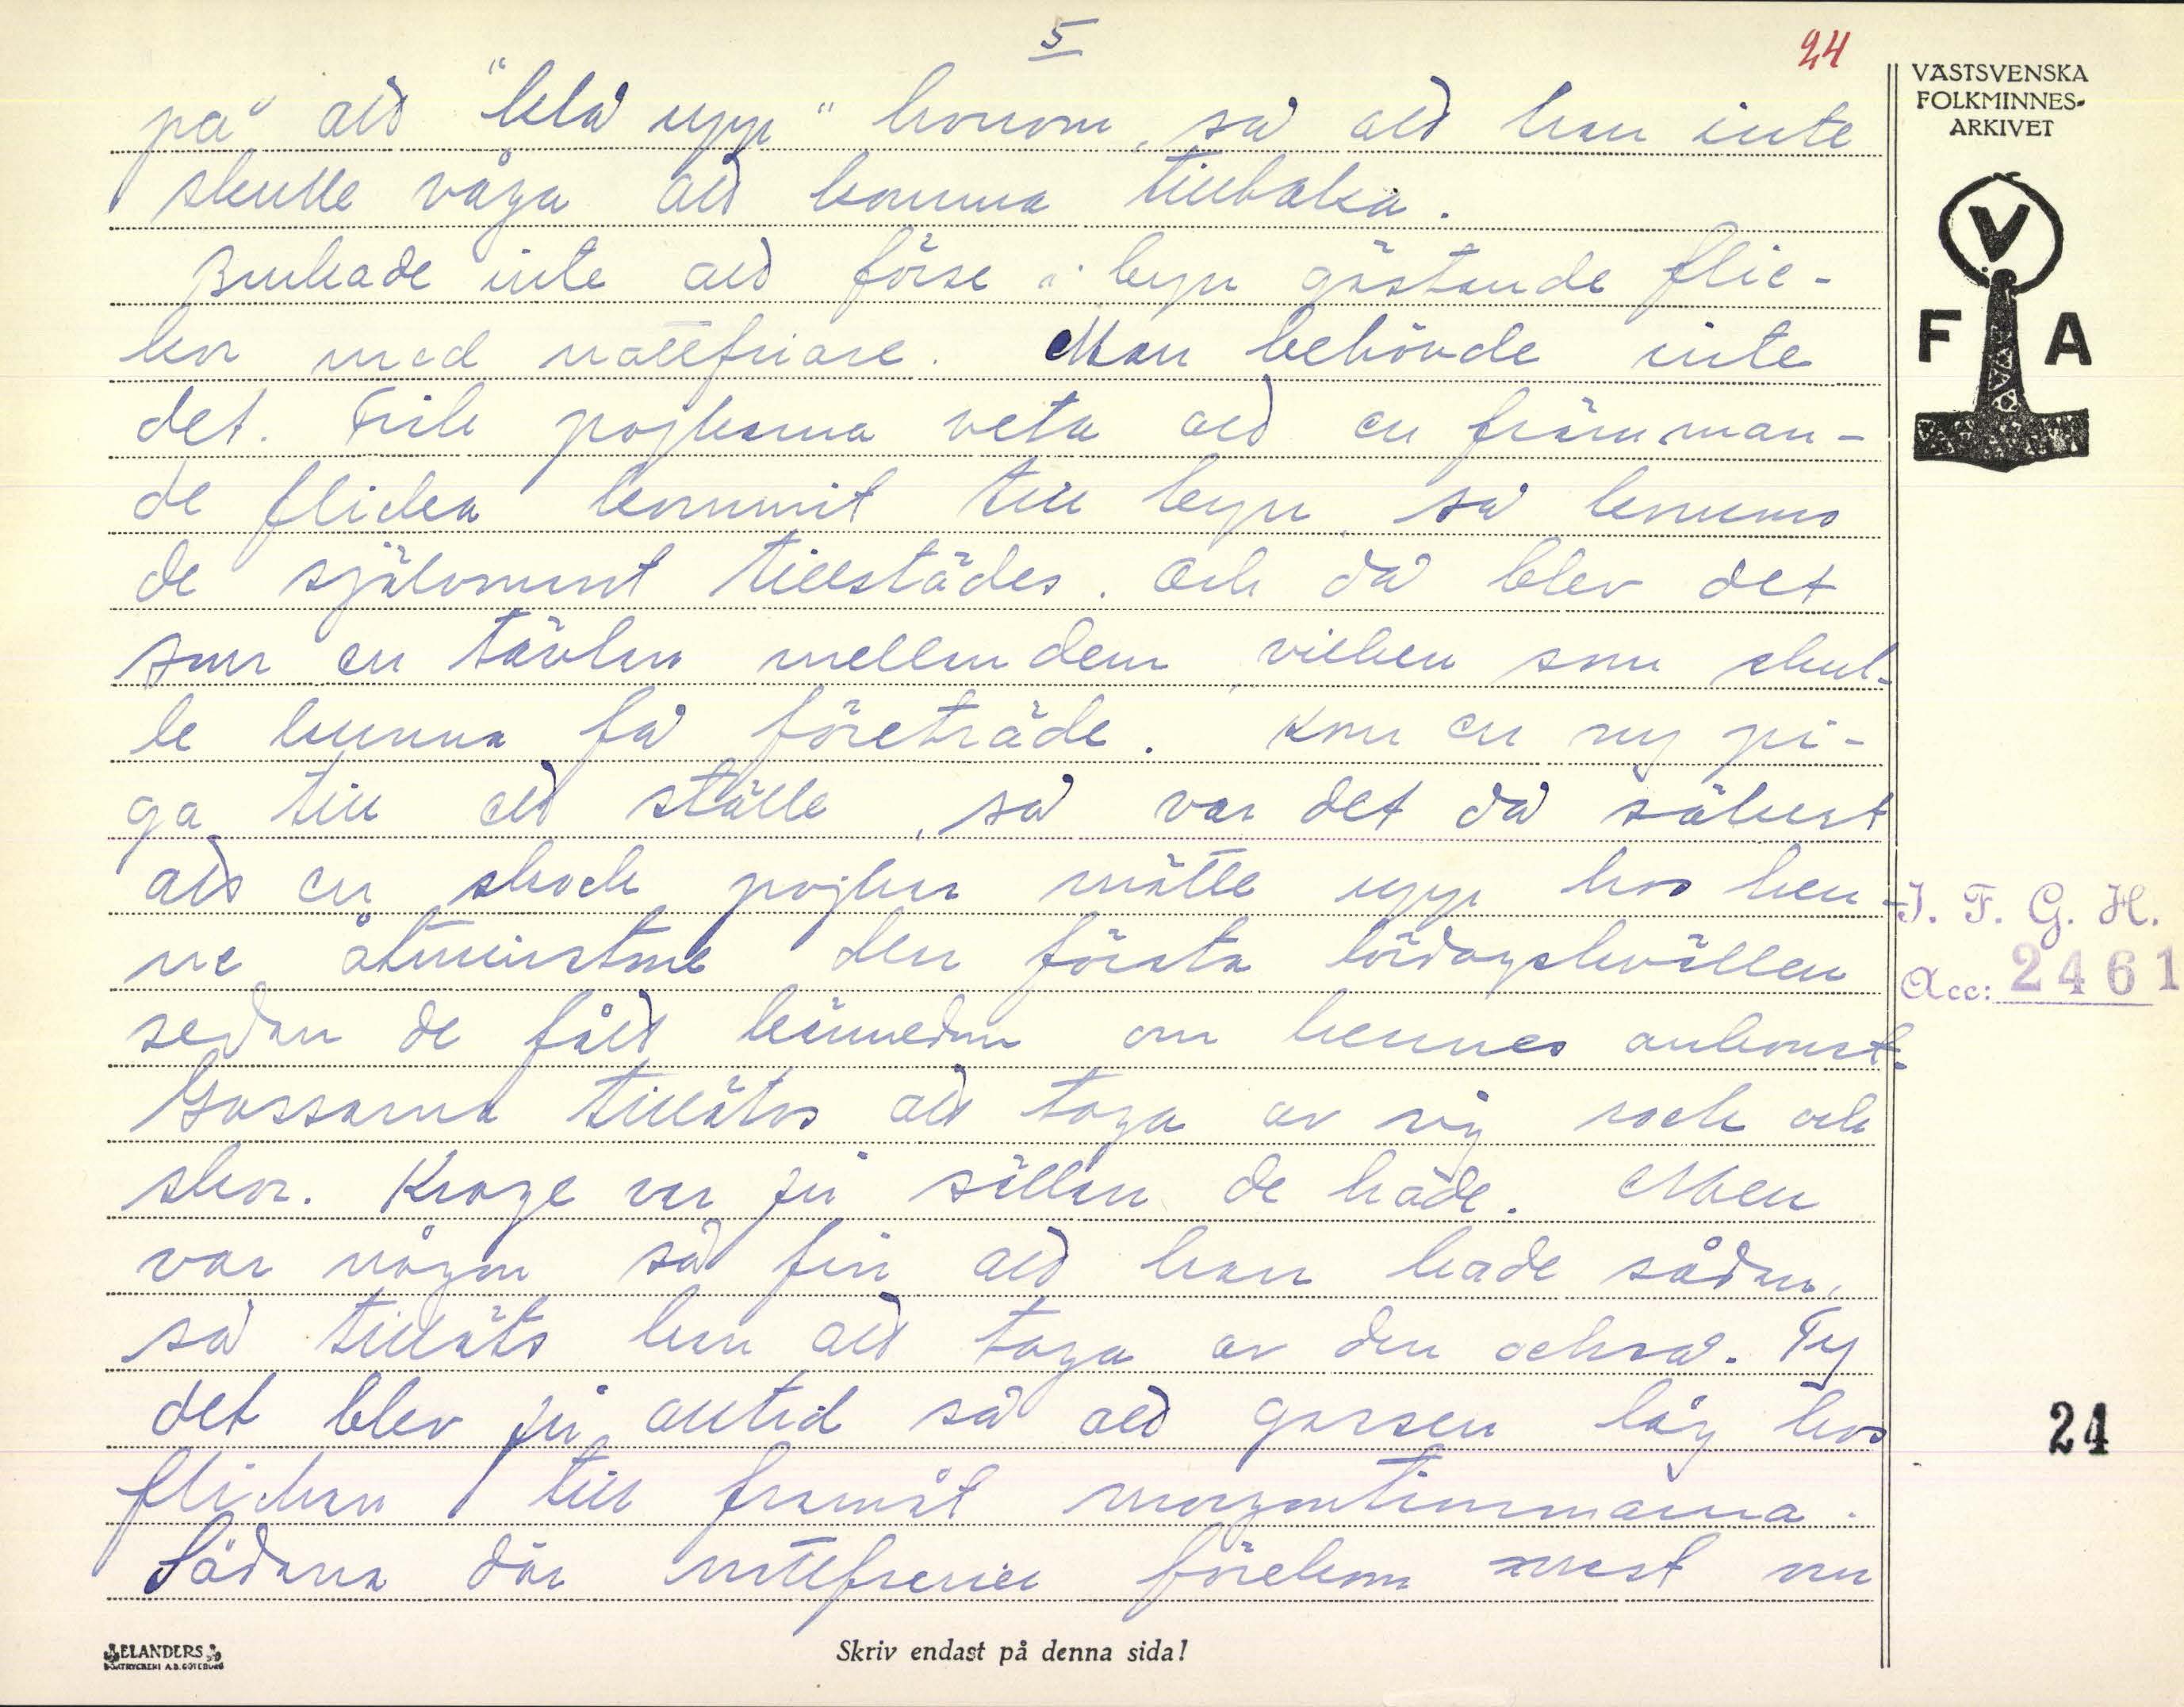 5
24
på att "klå upp" honom, så att han inte
skulle våga att komma tillbaka.
Brukade inte att förse i byn gästande flic-
kor med nattfriare. Man behövde inte
det. Fick pojkarna veta att en främman-
de flicka kommit till byn, så kommo
de självmant tillstädes. Och då blev det
som en tävlan mellan dem, vilken som skul-
le kunna få företräde. Kom en ny pi-
ga till ett ställe, så var det då säkert
att en skock pojkar mötte upp hos hen-
ne åtminstone den första lördagskvällen
sedan de fått kännedom om hennes ankomst.
Gossarna tilläts att taga av sig rock och
skor. Krage var ju sällan de hade. Men
var någon så fin att han hade sådan,
så tilläts han att taga av den också. Ty
det blev ju alltid så att gossen låg hos
flickan till framåt morgontimmarna.
Sådana där nattfrierier förekom mest om
VÄSTSVENSKA
FOLKMINNES-
ARKIVET
V
F A
I. F. G. H.
Acc: 2461
24
ELANDERS
BOKTRYCKERI A.B. GÖTEBORG
Skriv endast på denna sida!